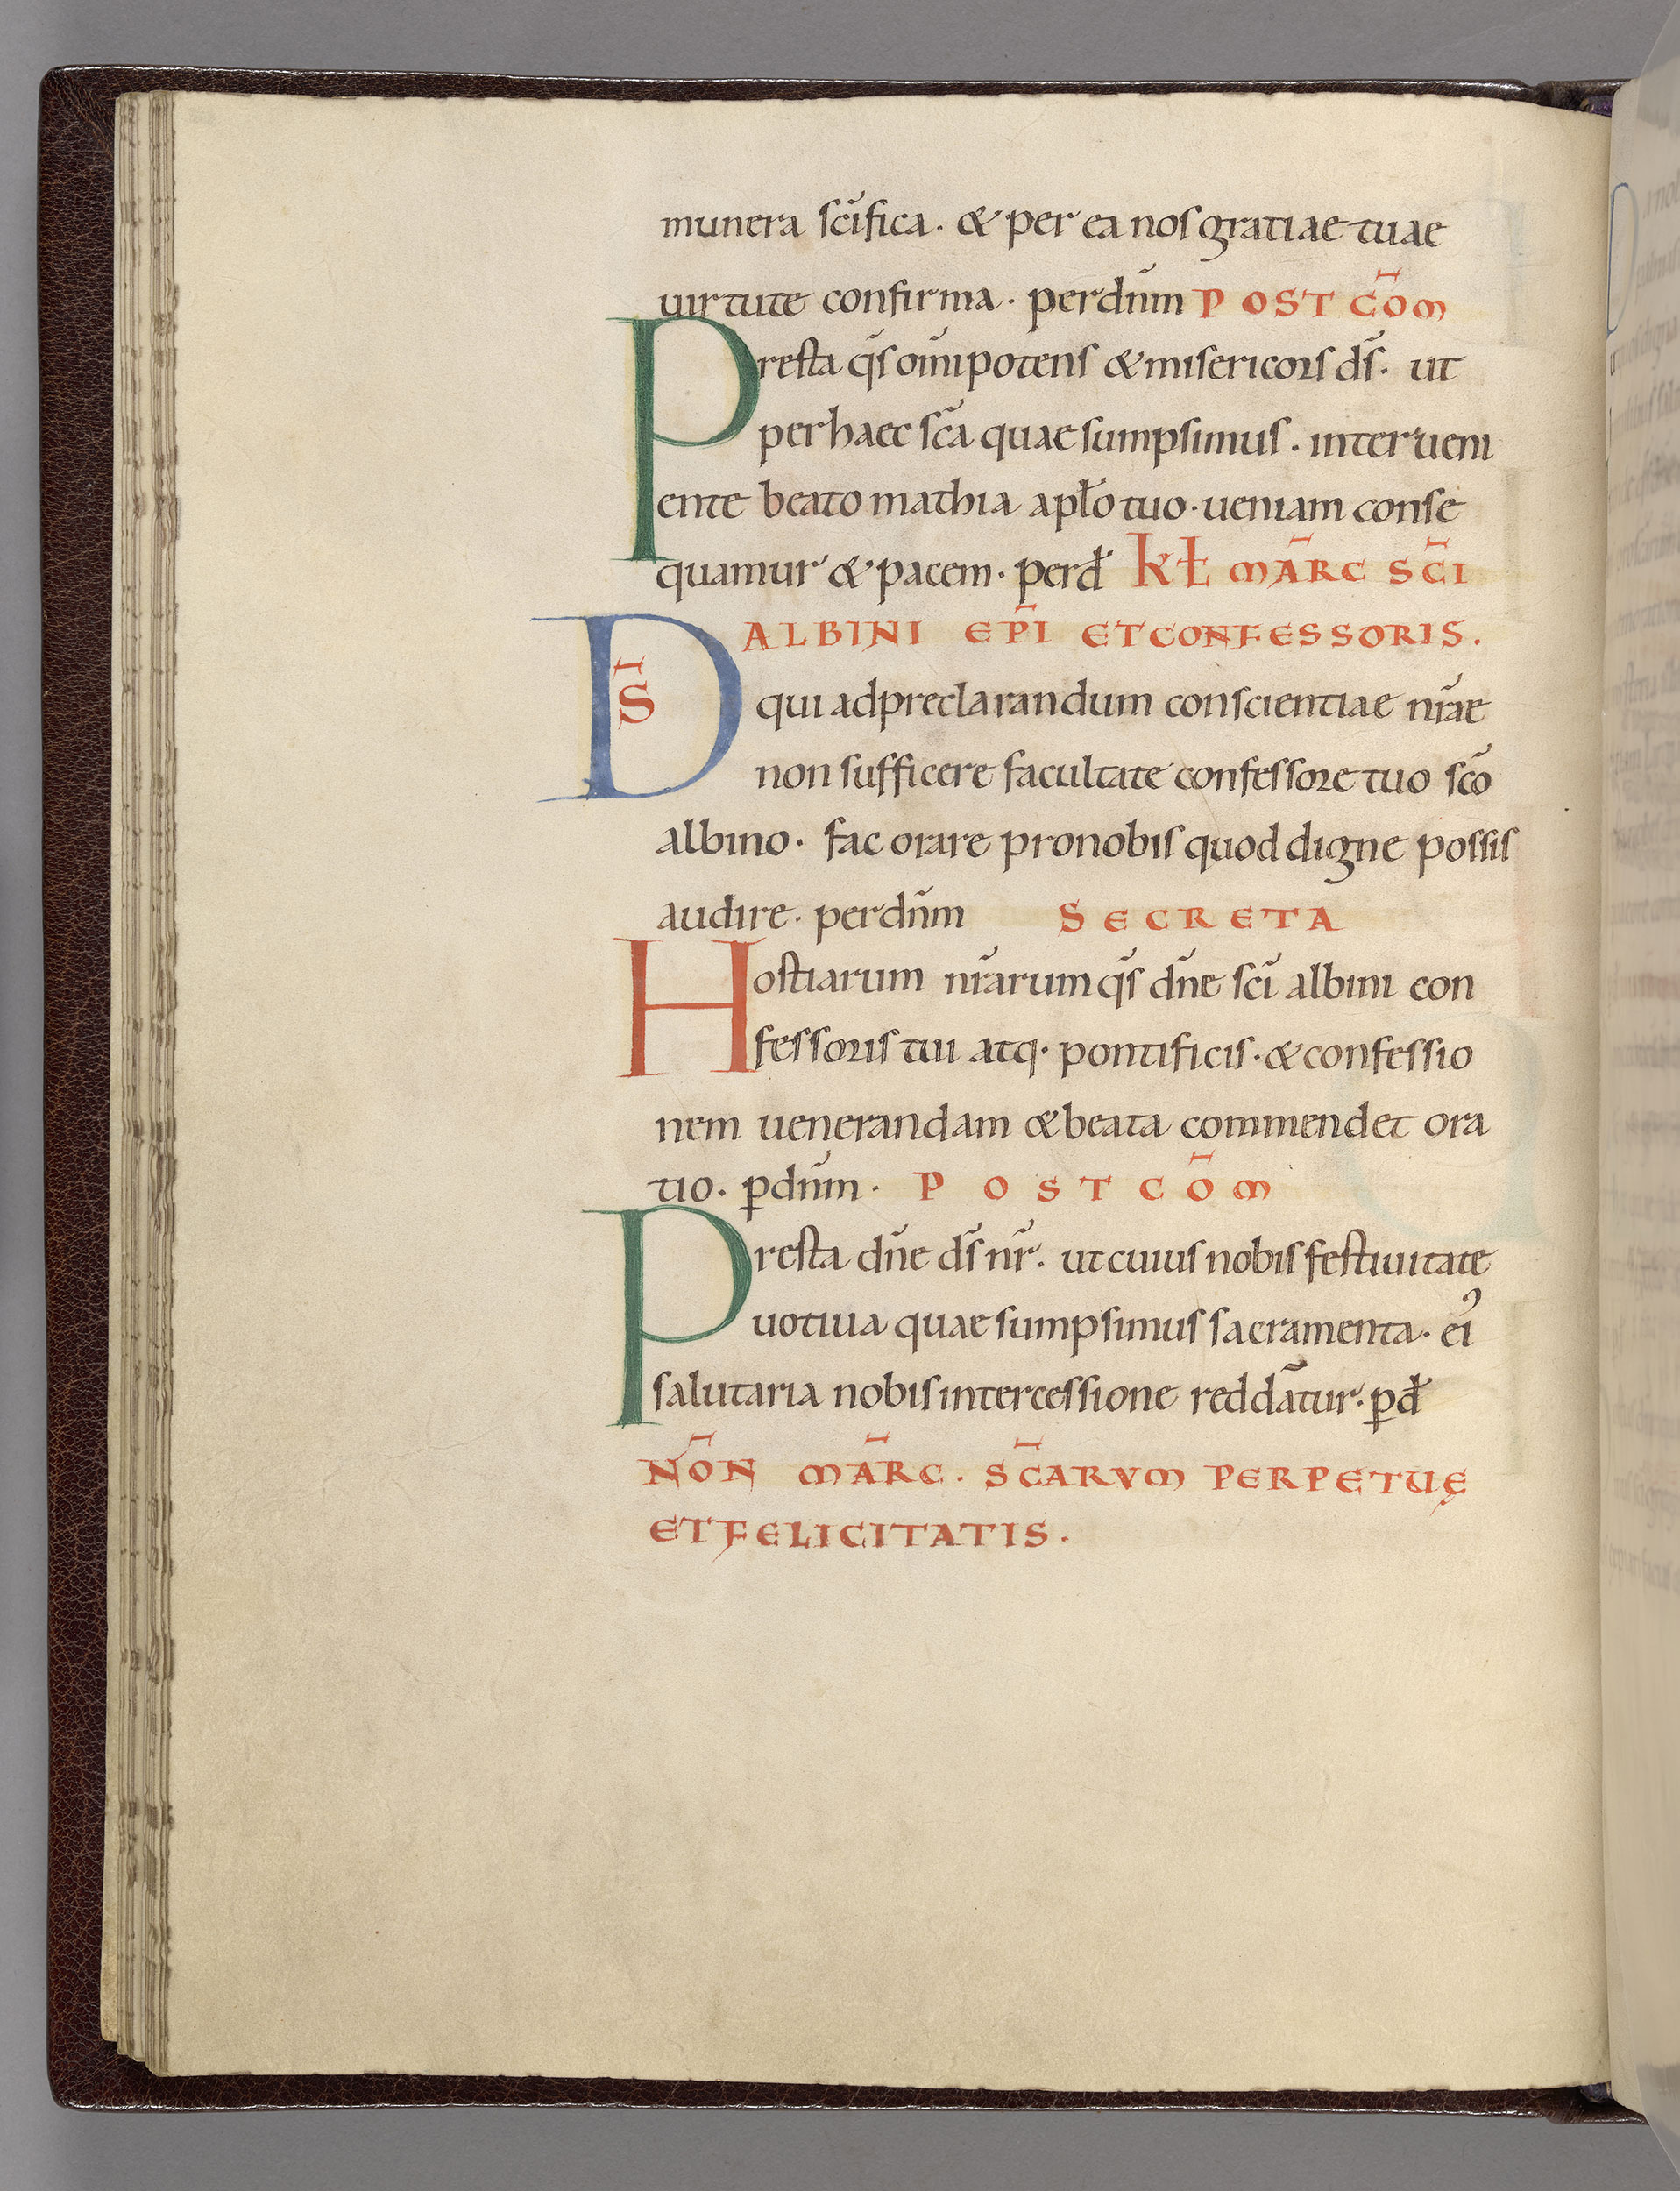 munera sc̄ifica. & per ea nos gratiae tuae
uirtute confirma. per dn̄m POST CŌM
Presta q̄s om̄ipotens & misericors ds̄. ut
per haec sc̄a quae sumpsimus. interueni
ente beato mathia apło tuo. ueniam conse
quamur & pacem. per đ kł MĀRC SC̄I
ALBINI EP̄I ET CONFESSORIS.
DS̄ qui ad preclarandum conscientiae nr̄ae
non sufficere facultate confessore tuo sc̄o
albino. fac orare pro nobis quod digne possis
audire. per dn̄m SECRETA
Hostiarum nr̄arum q̄s dn̄e sc̄i albini con
fessoris tui atq. pontificis. & confessio
nem uenerandam & beata commendet ora
tio. ꝑ dn̄m. POST CŌM
Presta dn̄e ds̄ nr̄. ut cuius nobis festiuitate
uotiua quae sumpsimus sacramenta. ei᾿
salutaria nobis intercessione reddātur. ꝑ đ
NŌN MĀRC. SC̄ARVM PERPETUĘ
ET FELICITATIS.